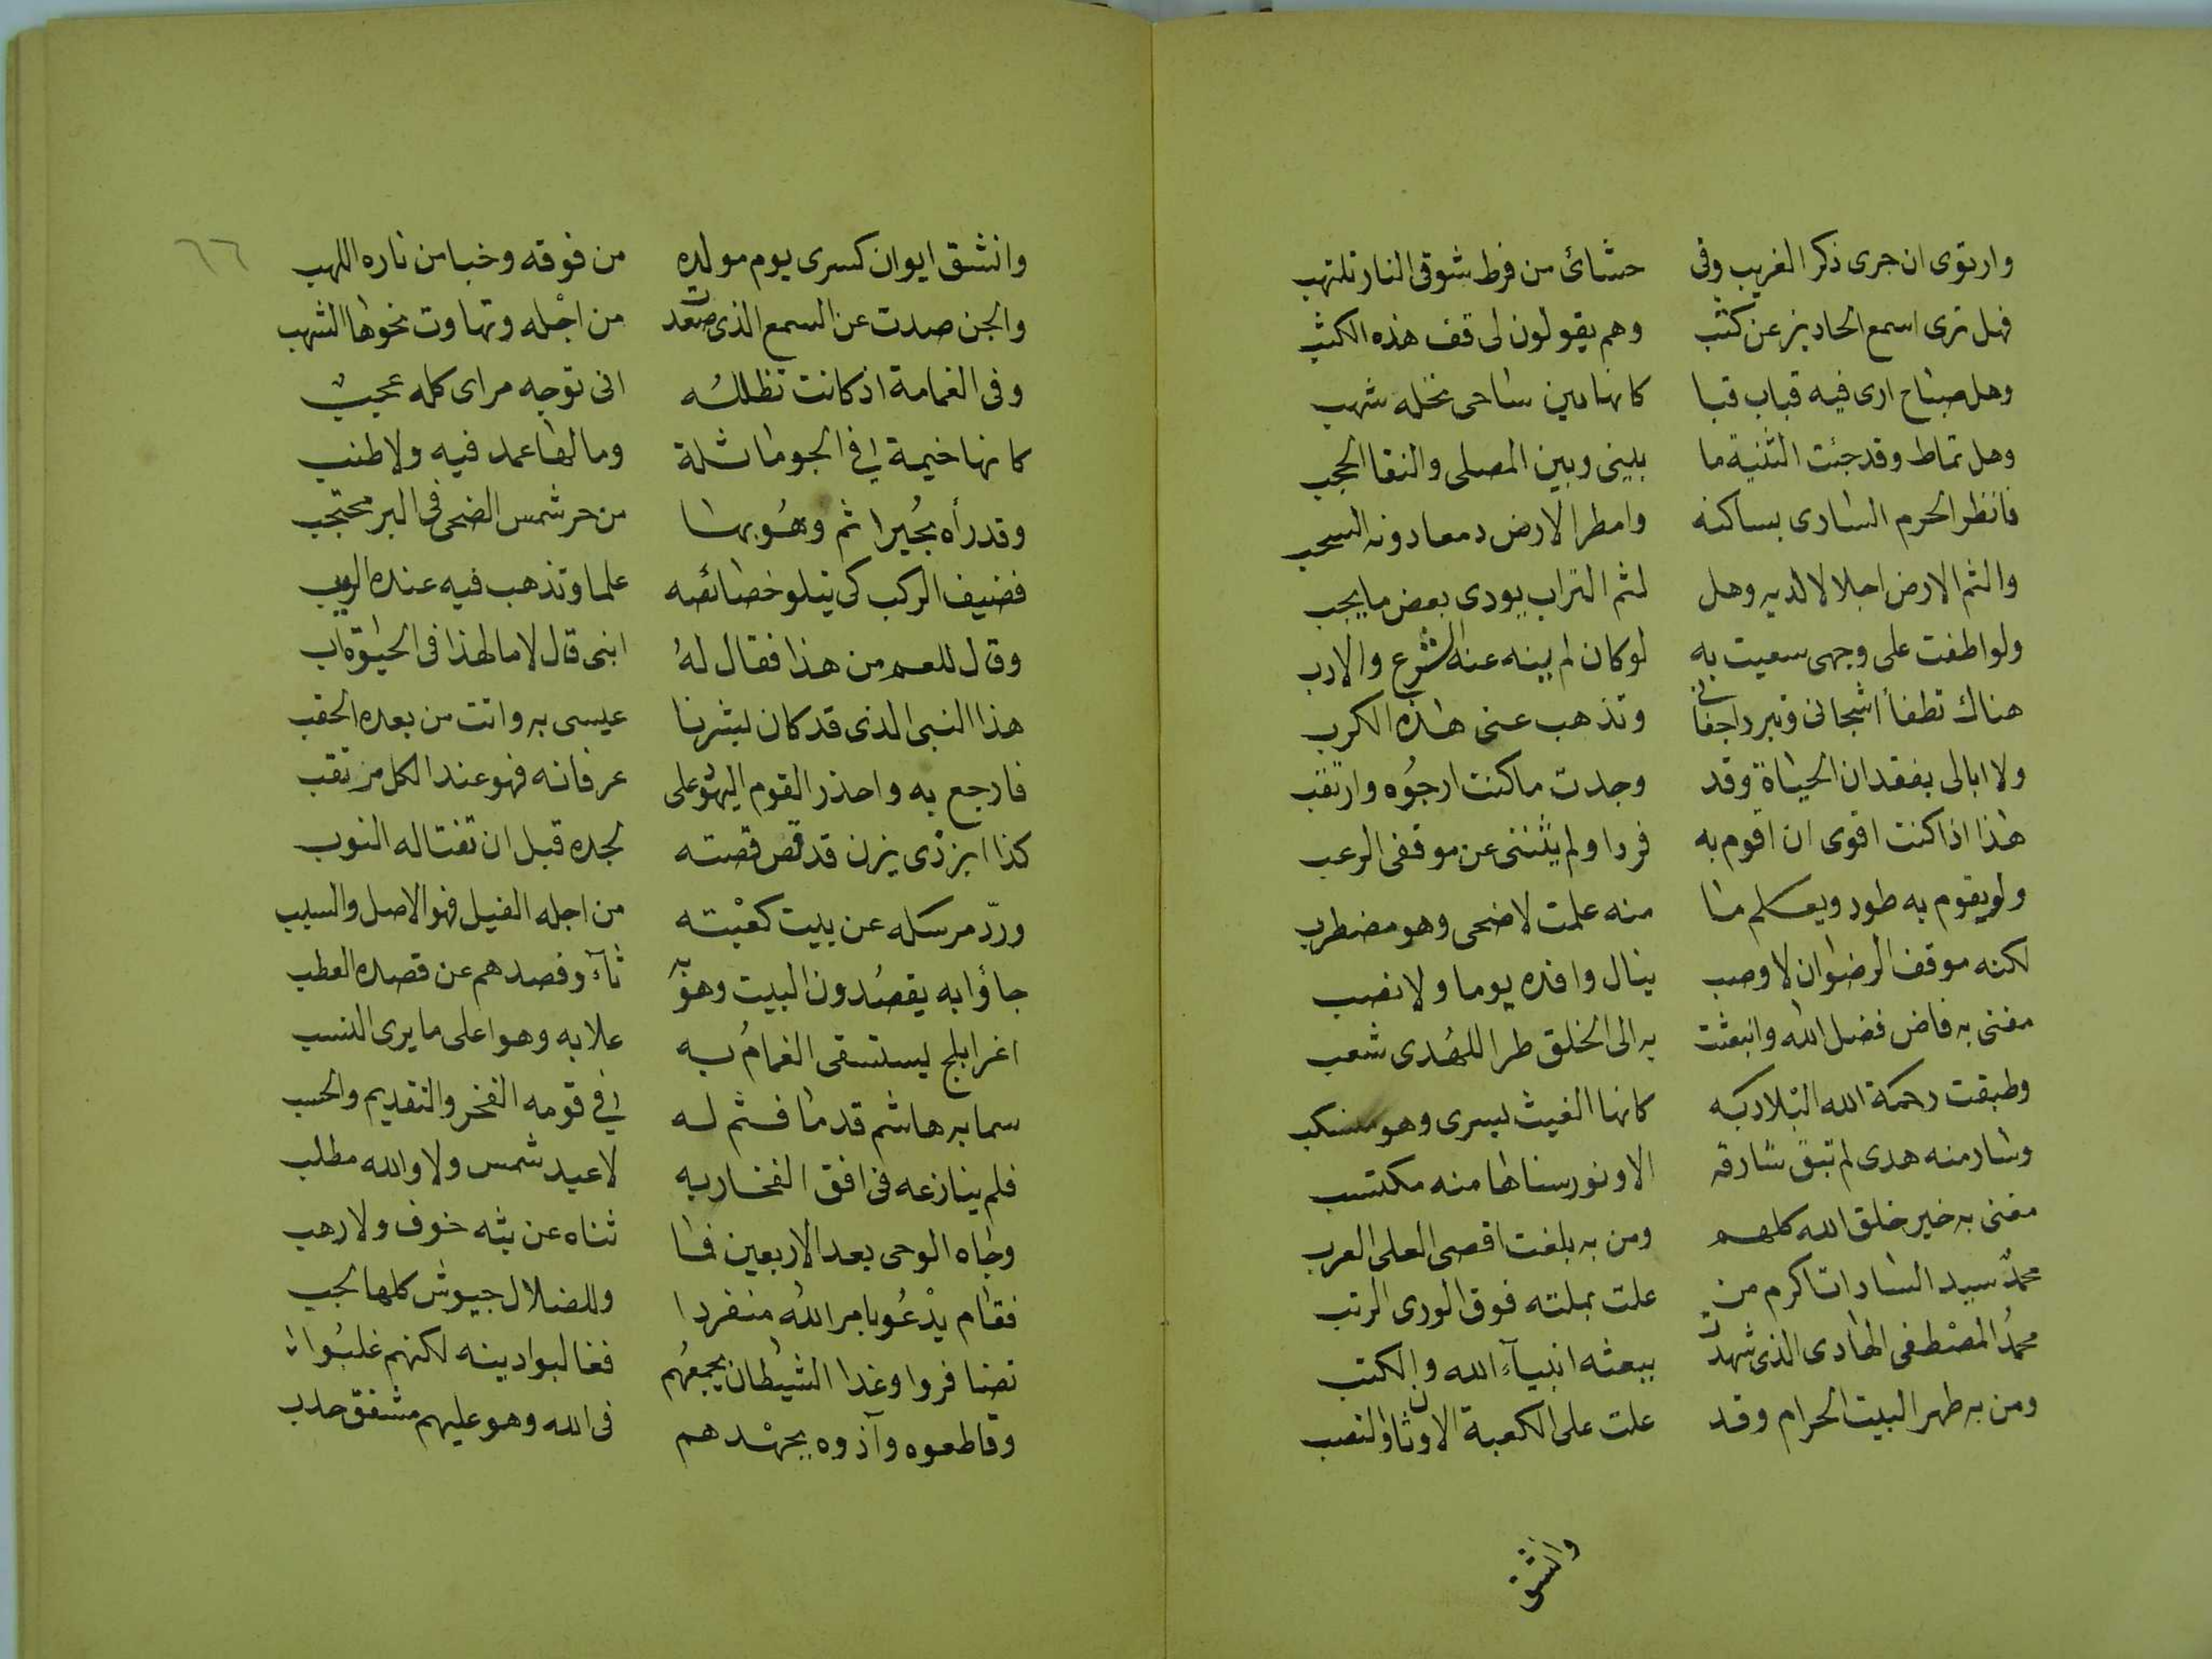 وارتوى ان جرى ذكر الغريب وفى حشائ من فرط شوقى النار تلتهب
فهل ترى اسمع الحادين عن كثب وهم يقولون لى قف هذه الكثب
وهل صباح ارى فيه قباب قبا كانها بين ساحى نخله شهب
وهل تماط وقد جئت الثنية ما بينى وبين المصلى والنقا الحجب
فانظر الحرم السارى بساكنه وامطر الارض دمعا دونه السحب
والثم الارض اجلالا لديه وهل لثم التراب يودى بعض ما يجب
ولو اطفت على وجهى سعيت به لو كان لم ينه عنه الشرع والادب
هناك تطفأ اشجانى وتبرد اجفانى وتذهب عنى هذه الكرب
ولا ابالى بفقدان الحياة وقد وجدت ما كنت ارجوُه وارتقب
هذا اذا كنت اقوى ان اقوم به فردا ولم يثننى عن موقفى الرعب
ولو يقوم به طود ويعلم ما منه علمت لاضحى وهو مضطرب
لكنه موقف الرضوان لا وصب ينال وافده يوما ولا نصب
مغنى به فاض فضل الله وانبعثت به الى الخلق طرا للهُدى شعب
وطبقت رحمة الله البلاد به كانها الغيث يسرى وهو منسكب
وسار منه هدى لم تبق شارقة الا ونور سناها منه مكتسب
مغنى به خير خلق الله كلهم ومن به بلغت اقصى العلى العرب
محمدٌ سيد السادات اكرم من علت بملته فوق الورى الرتب
محمدُ المصْطفى الهادى الذى شهدت ببعثه انبيآء الله والكتب
ومن به طهر البيت الحرام وقد علت على الكعبة الاوثان والنصب
وانشق
٦٦
وانشق ايوان كسرى يوم مولده من فوقه وخبا من ناره اللهب
والجن صدت عن السمع الذى صعدت من اجْله وتهاوت نحوها الشهب
وفى الغمامة اذ كانت تظللُه انى توجه مراى كله عجبٌ
كانها خيمة فى الجو ماثلة وما لها عمد فيه ولا طنب
وقد رأه بحُيرا ثم وهُو بها من حر شمس الضحى فى البر محتجب
فضيف الركب كى يتلو خصائصه علما وتذهب فيه عنده الريب
وقال للعم من هذا فقال لهُ ابنى قال لا ما لهذا فى الحيوة اب
هذا النبى الذى قد كان بشرنا عيسى به واتت من بعده الحقب
فارجع به واحذر القوم اليهود على عرفانه فهو عند الكل مرتقب
كذا ابن ذى يزن قد قص قصته لجده قبل ان تغتاله النوب
وردّ مرسله عن بيت كعْبته من اجله الفيل فهو الاصل والسبب
جاؤا به يقصُدون البيت وهو به ثآء وفصدهم عن قصده العطب
اغر ابلج يستسقى الغمامُ به علا به وهو اعلى ما يرى النسب
سما به هاشم قدما فثم له فى قومه الفخر والتقديم والحسب
فلم ينازعه فى افق الفخار به لا عبد شمس ولا والله مطلب
وجاه الوحى بعد الاربعين فما ثناه عن بثه خوف ولا رهب
فقام يدْعُو بامر الله منفردا وللضلال جيوش كلها لجب
تضافروا وغدا الشيطان يجمعُهم فغالبوا دينه لكنهم غلبُوا
وقاطعوه وآذوه بجهْدهم فى الله وهو عليهم مشفق حدب